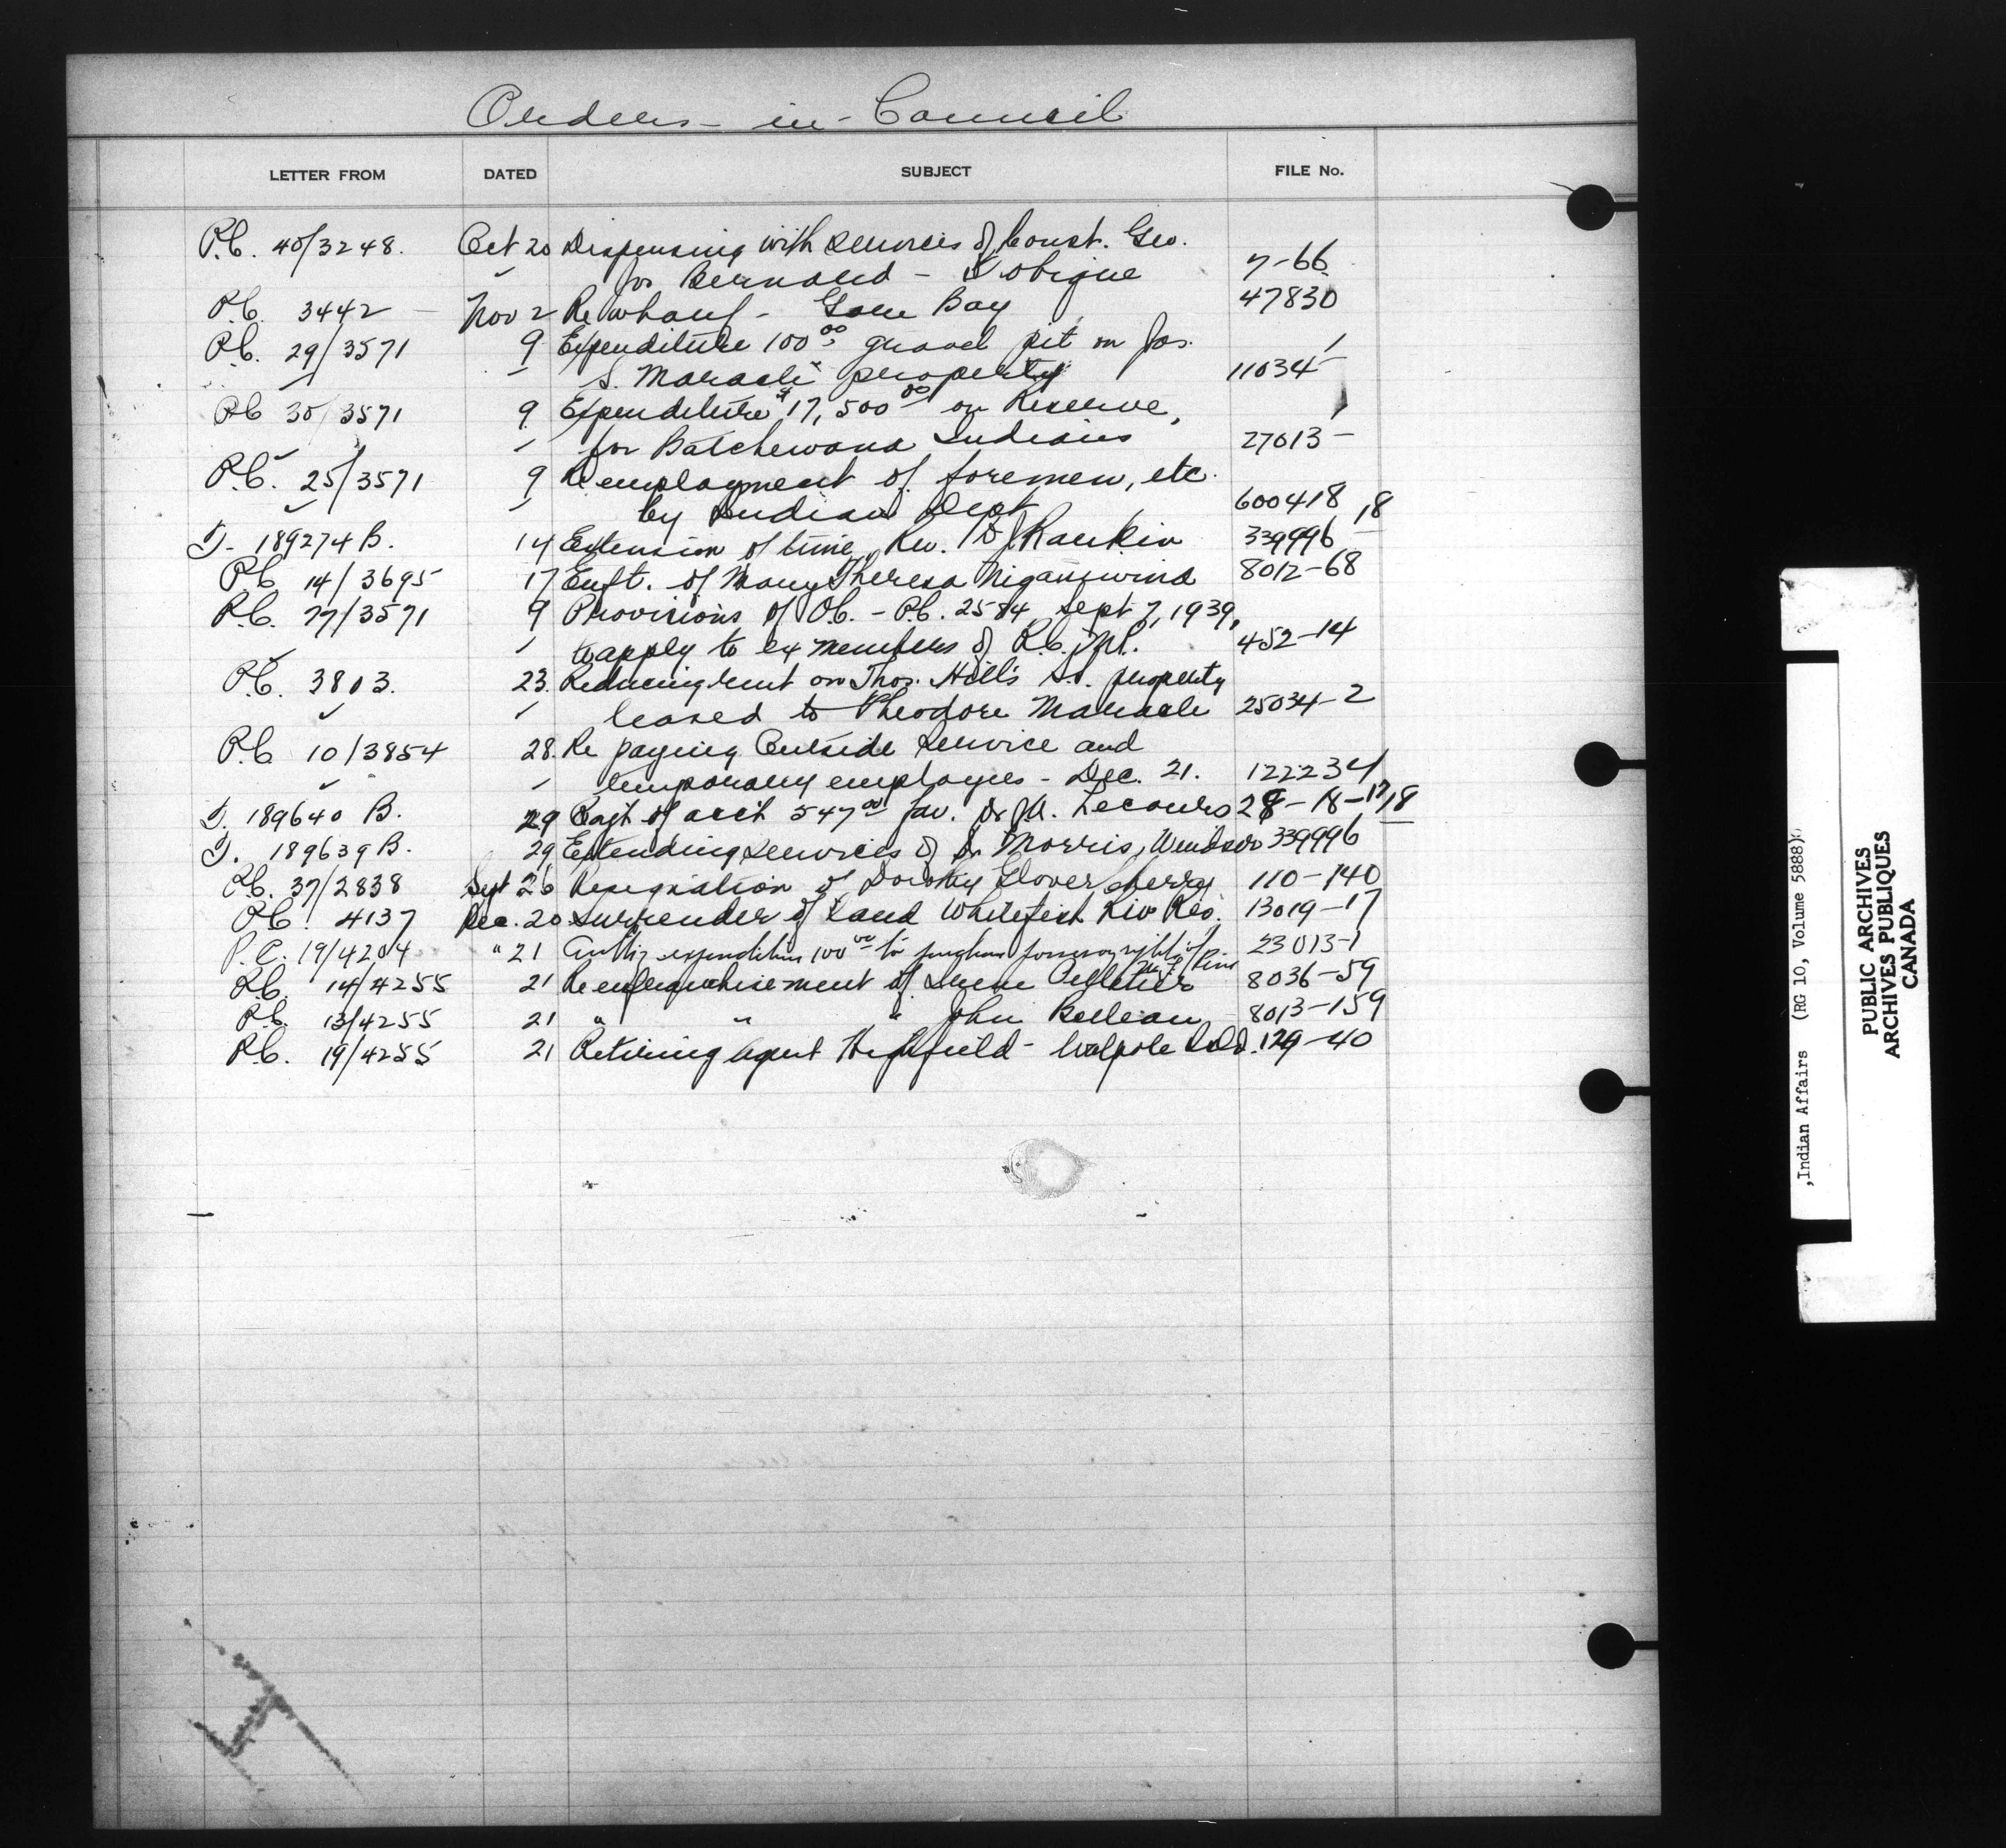 Orders-in-Council
LETTER FROM DATED SUBJECT FILE No.
P.C. 40/3248. Oct 20 Dispensing with services of Const. Geo.
for Bernard - Tobique 7-66
P.C. 3442 Nov 2 Re wharf - Gore Bay 47830
P.C. 29/3571 9 Expenditure 100.00 gravel pit on Jos.
S. Maracle property 11034-
P.C. 30/3571 9 Expenditure $17,500.00 on Reserve,
for Batchewana Indians 27013-
P.C. 25/3571 9 Re employment of foremen, etc.
by Indian Dept 600418
T. 189274 B. 14 Extension of time, Rev. Rankin 339996
P.C. 14/3695 17 Enft. of Mary Theresa Niganiwina 8012-68
P.C. 77/3571 9 Provisions of O.C. - P.C. 2584, Sept 7, 1939,
to apply to ex members of R.C.M.P. 452-14
P.C. 3803. 23. Reducing rent on Thos. Hill's property
leased to Theodore Maracle 25034-2
P.C. 10/3854 28. Re paying Outside Service and
temporary employees - Dec. 21. 122234
T. 189640 B. 29 Payt of acct 547.00 fav. Dr. J.A. Lecours
T. 189639 B. 29 Extending services of Dr Morris, Windsor 339996
P.C. 37/2838 Sept 26 Resignation of Dorothy Glover 110-140
P.C. 4137 Dec. 20 Surrender of land Whitefish Riv Res. 13019-17
P.C. 19/4204 " 21 Authz expenditure 100.00 for purchase possessory rights of 23013-1
P.C. 14/4255 21 Re enfranchisement of Irene Pelletier 8036-59
P.C. 13/4255 21 " " " John Belleau 8013-159
P.C. 19/4255 21 Retiring Agent Highfield - Walpole Isld. 129-40
,Indian Affairs (RG 10, Volume 5888)
PUBLIC ARCHIVES
ARCHIVES PUBLIQUES
CANADA